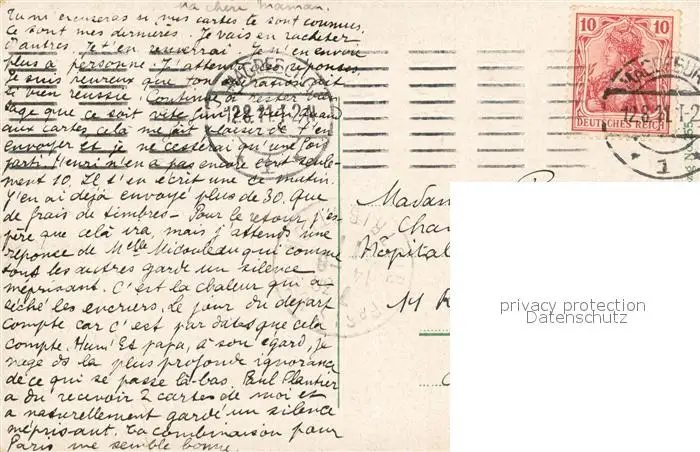 ma chère Maman.
Tu m'excuseras si mes cartes te sont connues.
Ce sont mes dernières. Je vais en racheter
d'autres. Je t'en renverrai. Je n'en envoie
plus à personne. J'attends des réponses.
Je suis heureux que ton opération ait
si bien réussie. Continue à rester bien
sage que ce soit vite fini. Quant
aux cartes, cela me fait plaisir de t'en
envoyer et je ne cesserai qu'une fois
parti. Henri n'en a pas encore écrit seule-
ment 10. Il s'en écrit une ce matin.
J'en ai déjà envoyé plus de 30. Que
de frais de timbres - Pour le retour, j'es-
père que cela ira, mais j'attends une
réponse de Melle Micouleau qui comme
tout les autres garde un silence
méprisant. C'est la chaleur qui a
séché les encriers. Le jour du départ
compte car c'est par dates que cela
compte. Hum! Et papa, à son égard, je
nage ds la plus profonde ignorance
de ce qui se passe là-bas. Paul Plantier
a du recevoir 2 cartes de moi et
a naturellement gardé un silence
méprisant. La combinaison pour
Paris me semble bonne.
10 10
DEUTSCHES REICH
12.8.11.
MAGDEBURG
12.8.11.
1
Madam
Cha
Hopital
11 R
privacy protection
Datenschutz